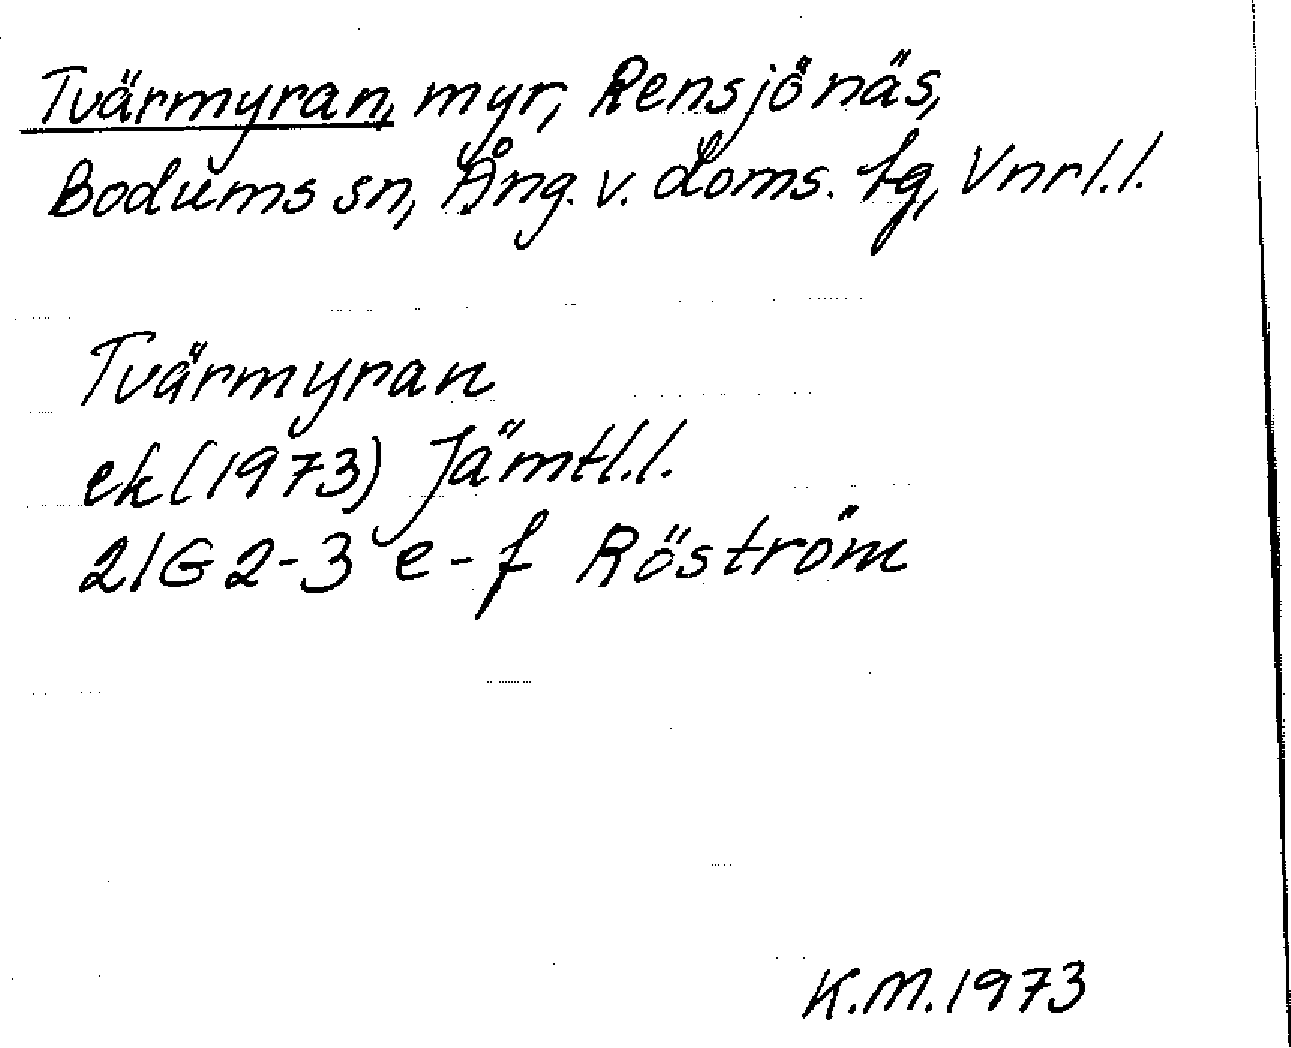 Tvärmyran, myr, Rensjönäs,
Bodums sn, Ång. v. doms. tg, Vnrl.l.
Tvärmyran
ek (1973) Jämtl.l.
21G 2-3 e-f Röström
K.M. 1973